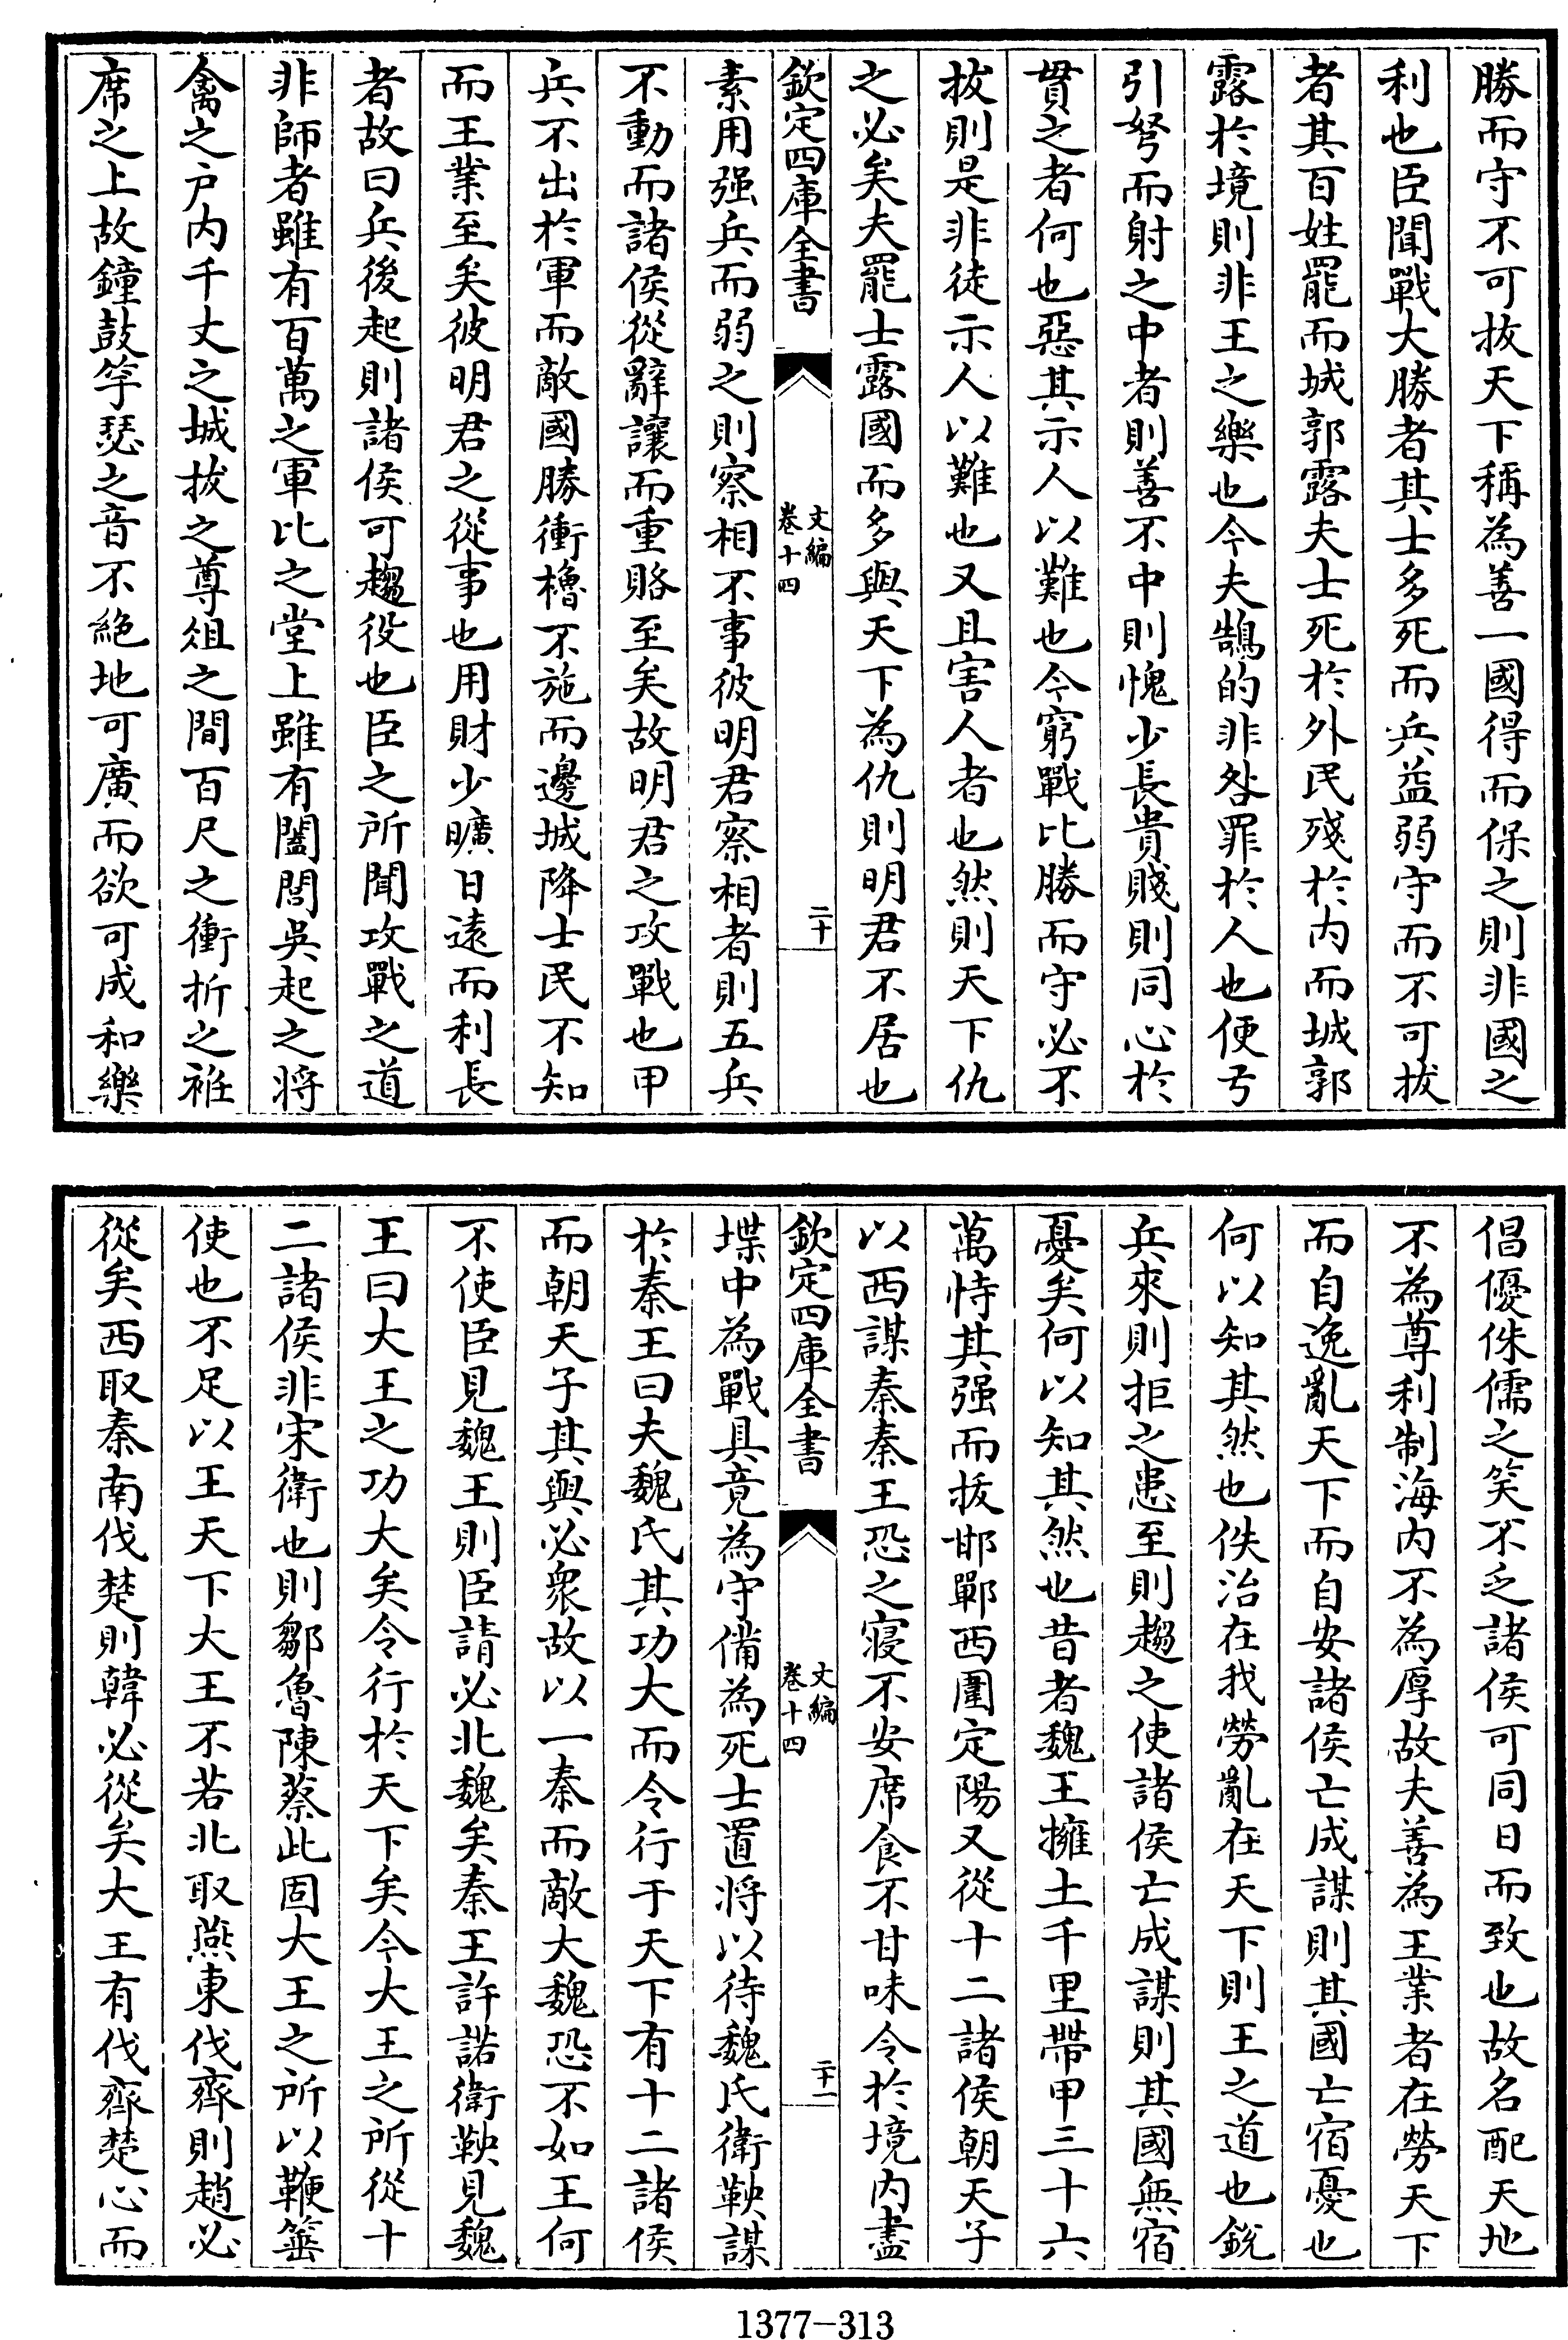 勝而守不可拔天下稱為善一國得而保之則非國之
利也臣聞戰大勝者其士多死而兵益弱守而不可拔
者其百姓罷而城郭露夫士死於外民殘於内而城郭
露於境則非王之樂也今夫鵠的非咎罪於人也便弓
引弩而射之中者則善不中則愧少長貴賤則同心於
貫之者何也惡其示人以難也今窮戰比勝而守必不
拔則是非徒示人以難也又且害人者也然則天下仇
之必矣夫罷士露國而多與天下為仇則明君不居也
欽定四庫全書
文編
卷十四
二十
素用强兵而弱之則察相不事彼明君察相者則五兵
不動而諸侯從辭讓而重賂至矣故明君之攻戰也甲
兵不出於軍而敵國勝衝櫓不施而邊城降士民不知
而王業至矣彼明君之從事也用財少曠日遠而利長
者故曰兵後起則諸侯可趨役也臣之所聞攻戰之道
非師者雖有百萬之軍比之堂上雖有闔閭吳起之将
禽之户内千丈之城拔之尊俎之間百尺之衝折之袵
席之上故鐘鼓竽瑟之音不絶地可廣而欲可成和樂
倡優侏儒之笑不乏諸侯可同日而致也故名配天地
不為尊利制海内不為厚故夫善為王業者在勞天下
而自逸亂天下而自安諸侯亡成謀則其國亡宿憂也
何以知其然也佚治在我勞亂在天下則王之道也銳
兵來則拒之患至則趨之使諸侯亡成謀則其國無宿
憂矣何以知其然也昔者魏王擁土千里帶甲三十六
萬恃其强而拔邯鄲西圍定陽又從十二諸侯朝天子
以西謀秦秦王恐之寢不安席食不甘味令於境内盡
欽定四庫全書
文編
卷十四
二十一
堞中為戰具竟為守備為死士置将以待魏氏衛鞅謀
於秦王曰夫魏氏其功大而令行于天下有十二諸侯
而朝天子其與必衆故以一秦而敵大魏恐不如王何
不使臣見魏王則臣請必北魏矣秦王許諾衛鞅見魏
王曰大王之功大矣令行於天下矣今大王之所從十
二諸侯非宋衛也則鄒魯陳蔡此固大王之所以鞭箠
使也不足以王天下大王不若北取燕東伐齊則趙必
從矣西取秦南伐楚則韓必從矣大王有伐齊楚心而
1377-313